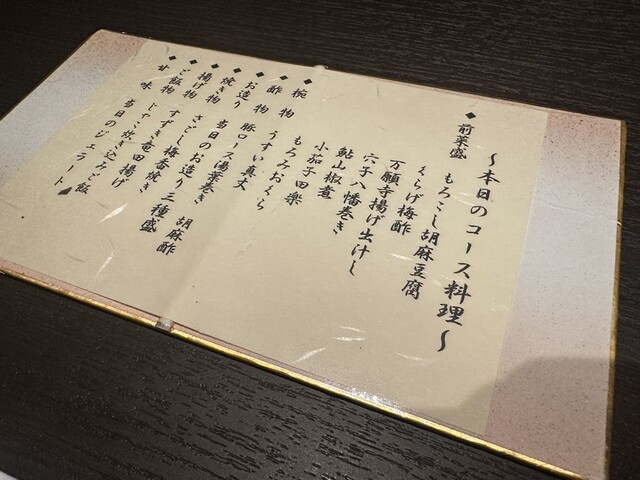 ～本日のコース料理～
◆前菜盛 もろこし胡麻豆腐
くらげ梅酢
万願寺揚げ出汁し
穴子八幡巻き
鮎山椒煮
小茄子田楽
もろみおくら
◆椀物 うすい真丈
◆酢物 豚ロース湯葉巻き 胡麻酢
◆お造り 当日のお造り三種盛
◆焼き物 さごし梅香焼き
◆揚げ物 すずき竜田揚げ
◆ご飯物 じゃこ炊き込みご飯
◆甘味 当日のジェラート